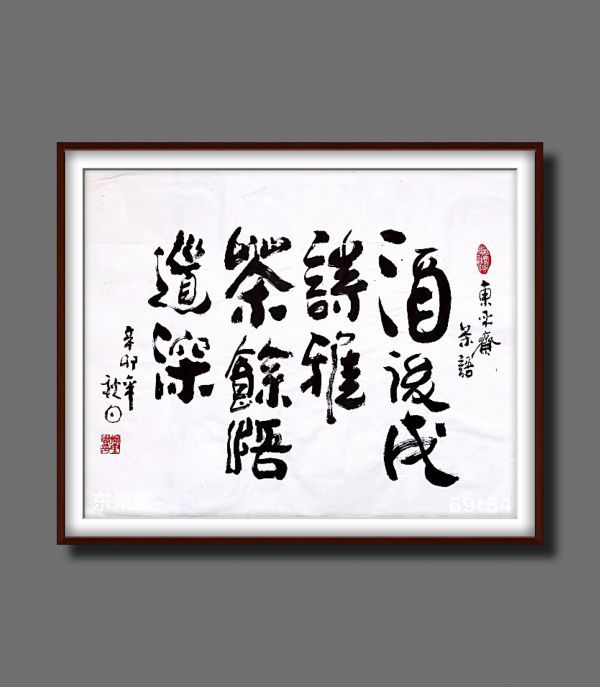 東来齋
茶語
酒後成
詩雅
茶餘悟
道深
辛卯年
东来斋
69*54